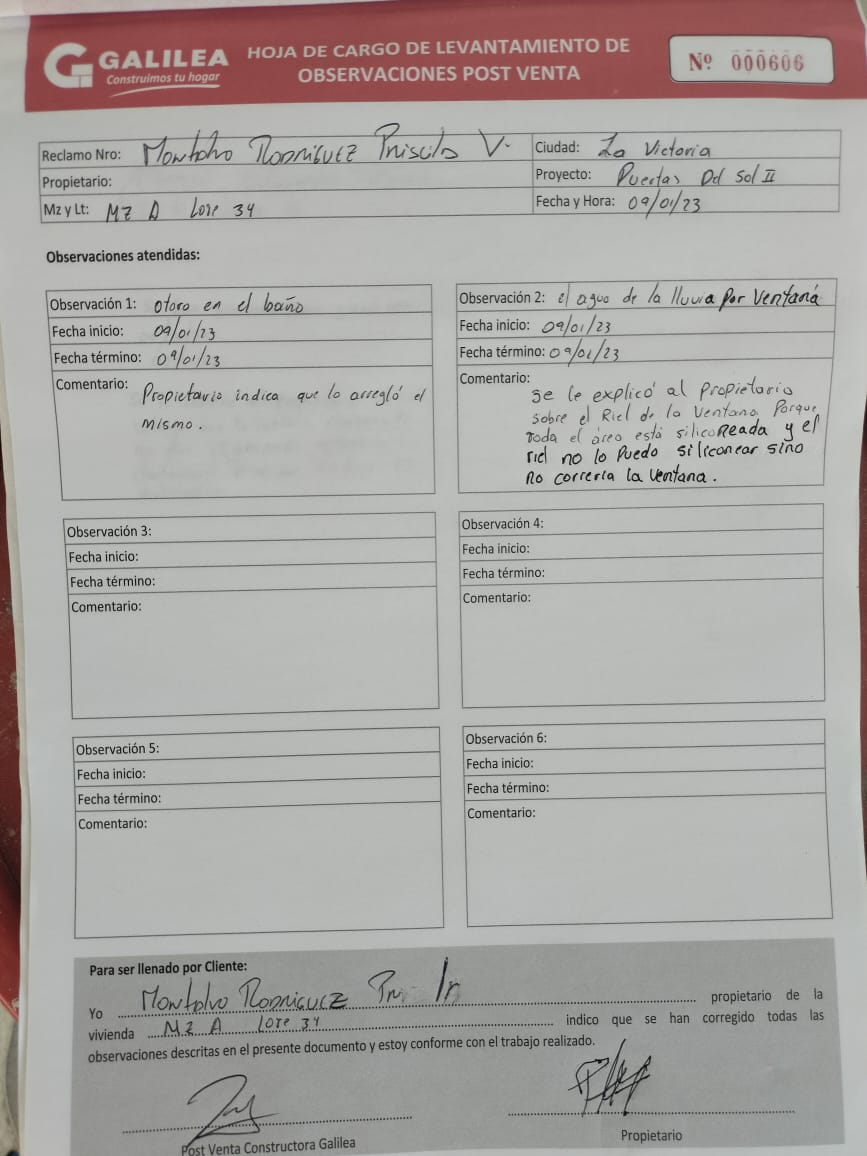 GALILEA
Construimos tu hogar
HOJA DE CARGO DE LEVANTAMIENTO DE
OBSERVACIONES POST VENTA
Nº 000606
Reclamo Nro: Montalvo Rodriguez Priscila V.
Ciudad: La Victoria
Propietario:
Proyecto: Puertas Del Sol II
Mz y Lt: MZ A Lote 34
Fecha y Hora: 09/01/23
Observaciones atendidas:
Observación 1: otoro en el baño
Fecha inicio: 09/01/23
Fecha término: 09/01/23
Comentario: Propietario indica que lo arregló el
mismo.
Observación 2: el agua de la lluvia por ventana
Fecha inicio: 09/01/23
Fecha término: 09/01/23
Comentario: se le explicó al propietario
sobre el Riel de la ventana. Porque
toda el área está siliconeada y el
riel no lo puedo siliconear sino
no correría la ventana.
Observación 3:
Fecha inicio:
Fecha término:
Comentario:
Observación 4:
Fecha inicio:
Fecha término:
Comentario:
Observación 5:
Fecha inicio:
Fecha término:
Comentario:
Observación 6:
Fecha inicio:
Fecha término:
Comentario:
Para ser llenado por Cliente:
Yo Montalvo Rodriguez propietario de la
vivienda MZ A Lote 34 indico que se han corregido todas las
observaciones descritas en el presente documento y estoy conforme con el trabajo realizado.
Post Venta Constructora Galilea
Propietario